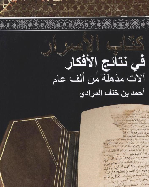 كتاب الأسرار
في نتائج الأفكار
آلات مذهلة من ألف عام
أحمد بن خلف المرادي